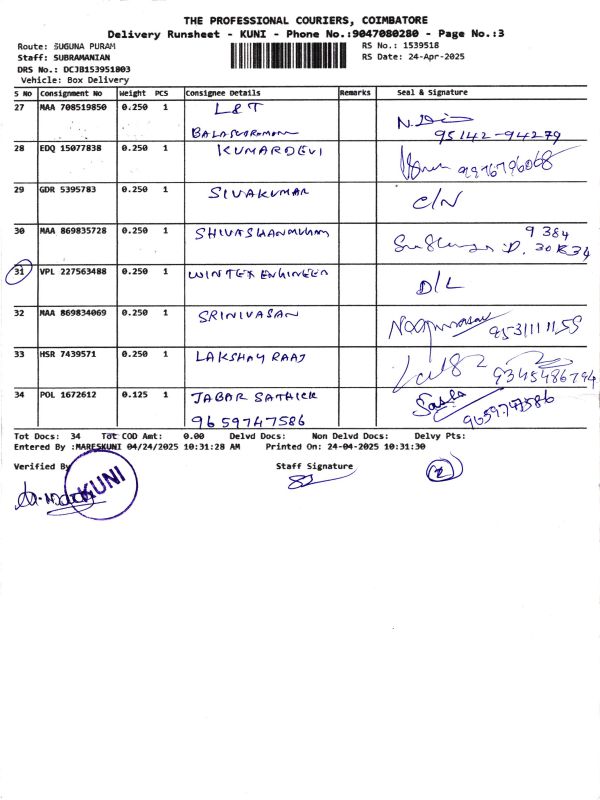 THE PROFESSIONAL COURIERS, COIMBATORE
Delivery Runsheet - KUNI - Phone No.:9047080280 - Page No.:3
Route: SUGUNA PURAM
RS No.: 1539518
Staff: SUBRAMANIAN
RS Date: 24-Apr-2025
DRS No.: DCJB153951803
Vehicle: Box Delivery
S No Consignment No Weight PCS Consignee Details Remarks Seal & Signature
27 MAA 708519850 0.250 1 L & T
95142-94279
28 EDQ 15077838 0.250 1 KUMARDEVI
29 GDR 5395783 0.250 1 SIVAKUMAR C/N
30 MAA 869835728 0.250 1 SHIVASHANMUGAM
9 384
31 VPL 227563488 0.250 1 WINTEX ENGINEER D/L
32 MAA 869834069 0.250 1 SRINIVASAN
33 HSR 7439571 0.250 1 LAKSHAY RAAJ 9345486794
34 POL 1672612 0.125 1 JABAR SATHICK
9659747586 9659747586
Tot Docs: 34 Tot COD Amt: 0.00 Delvd Docs: Non Delvd Docs: Delvy Pts:
Entered By :MARESKUNI 04/24/2025 10:31:28 AM Printed On: 24-04-2025 10:31:30
Verified By Staff Signature
KUNI
2